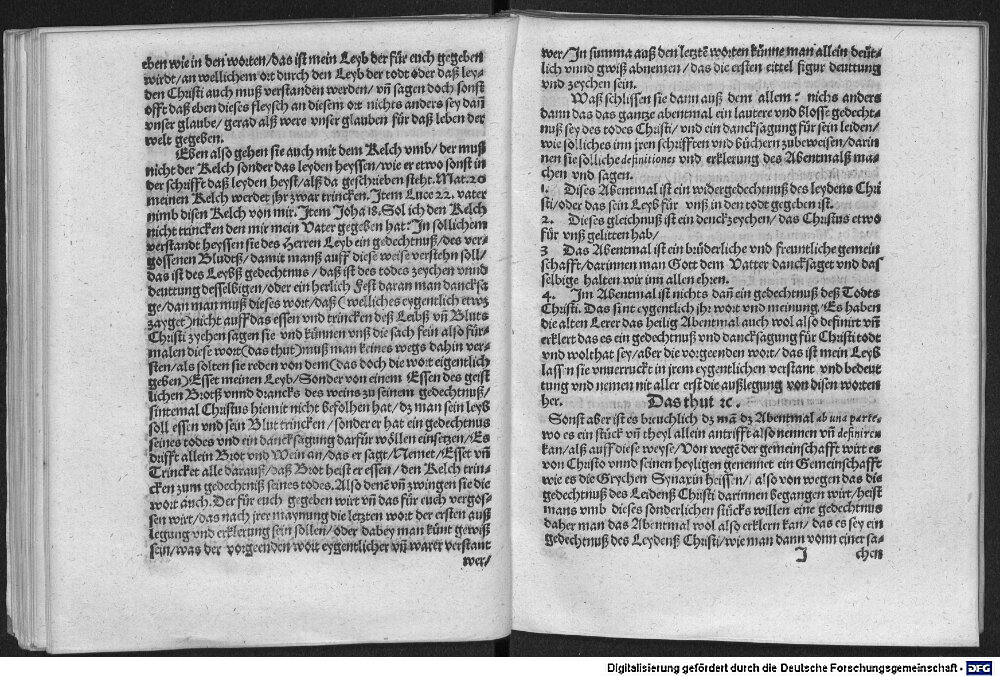 eben wie in den worten/das ist mein Leyb der für euch gegeben
wirdt/an wellichem ort durch den Leyb der todt oder daß ley-
den Christi auch muß verstanden werden/ vñ sagen doch sonst
offt daß eben dieses fleysch an diesem ort nichts anders sey dañ
vnser glaube/ gerad alß were vnser glauben für daß leben der
welt gegeben.
Eben also gehen sie auch mit dem Kelch vmb/ der muß
nicht der Kelch sonder das leyden heyssen/wie er etwo sonst in
der schrifft daß leyden heyst/alß da geschrieben steht. Mat. 20
meinen Kelch werdet jhr zwar trincken. Item Luce 22. vater
nimb disen Kelch von mir. Item Joha 18. Sol ich den Kelch
nicht trincken den mir mein Vater gegeben hat: In sollichem
verstandt heyssen sie des Herren Leyb ein gedechtnuß/des ver-
gossenen Bludtß/damit manß auff diese weise verstehn soll/
das ist des Leybß gedechtnus/ daß ist des todes zeychen vnnd
deuttung desselbigen/oder ein herlich Fest daran man dancksa
ge/dan man muß dieses wort/daß (welliches eygentlich etwz
zayget) nicht auff das essen vnd trincken deß Leibß vñ Bluts
Christi zyehen sagen sie vnd künnen vnß die sach fein also für-
malen diese wort (das thut) muß man keines wegs dahin ver-
sten/als solten sie reden von dem (das doch die wort eigentlich
geben) Esset meinen Leyb/ Sonder von einem Essen des geist
lichen Brotß vnnd drancks des weins zu seinem gedechtnuß/
sintemal Christus hiemit nicht befolhen hat/ dz man sein leyb
soll essen vnd sein Blut trincken/ sonder er hat ein gedechtnus
seines todes vnd ein dancksagung darfür wöllen einsetzen/ Es
dufft allein Brot vnd Wein an/das er sagt/Nemet/Esset vñ
Trincket alle darauß/daß Brot heist er essen/ den Kelch trin-
cken zum gedechtniß seines todes. Also denẽ vñ zwingen sie die
wort auch. Der für euch gegeben wirt vñ das für euch vergos-
sen wirt/das nach jrer maynung die letzten wort der ersten auß
legung vnd erklerung sein sollen/ oder dabey man künt gewiß
sein/was der vorgeenden wort eygentlicher vñ warer verstant
wer/
wer/In summa auß den letztẽ worten künne man allein deüt-
lich vnnd gwiß abnemen/das die ersten eittel figur deuttung
vnd zeychen sein.
Waß schlissen sie dann auß dem allem: nichs anders
dann das das gantze abentmal ein lautere vnd blosse gedecht-
nuß sey des todes Christi/vnd ein dancksagung für sein leiden/
wie solliches inn jren schrifften vnd büchern zubeweisen/darin
nen sie solliche definitiones vnd erklerung des Abentmalß ma
chen vnd sagen.
1. Dises Abentmal ist ein widergedechtnuß des leydens Chri
sti/oder das sein Leyb für vnß in den todt gegeben ist.
2. Dieses gleichnuß ist ein denckzeychen/ das Christus etwo
für vnß gelitten hab/
3 Das Abentmal ist ein brüderliche vnd freuntliche gemein
schafft/darinnen man Gott dem Vatter dancksaget vnd das
selbige halten wir im allen ehren.
4. Im Abentmal ist nichts dañ ein gedechtnuß deß Todts
Christi. Das sint eygentlich jhr wort vnd meinung/ Es haben
die alten Lerer das heilig Abentmal auch wol also definirt vñ
erklert das es ein gedechtnuß vnd dancksagung für Christi todt
vnd wolthat sey/aber die vorgeenden wort/das ist mein Leyb
lassen sie vnuerruckt in jrem eygentlichen verstant vnd bedeut
tung vnd nemen nit aller erst die außlegung von disen worten
her. Das thut ꝛc.
Sonst aber ist es breuchlich dz mã dz Abentmal ab una parte,
wo es ein stück vñ theyl allein antrifft also nennen vñ definiren
kan/alß auff diese weyse/Von wegẽ der gemeinschafft wirt es
von Christo vnnd seinen heyligen genennet ein Gemeinschafft
wie es die Grychen Synaxin heissen/ also von wegen das die
gedechtnuß des Leidenß Christi darinnen begangen wirt/heist
mans vmb dieses sonderlichen stücks willen eine gedechtnus
daher man das Abentmal wol also erklern kan/das es sey ein
gedechtnuß des Leydenß Christi/wie man dann vonn einer sa-
J chen
Digitalisierung gefördert durch die Deutsche Forschungsgemeinschaft - DFG